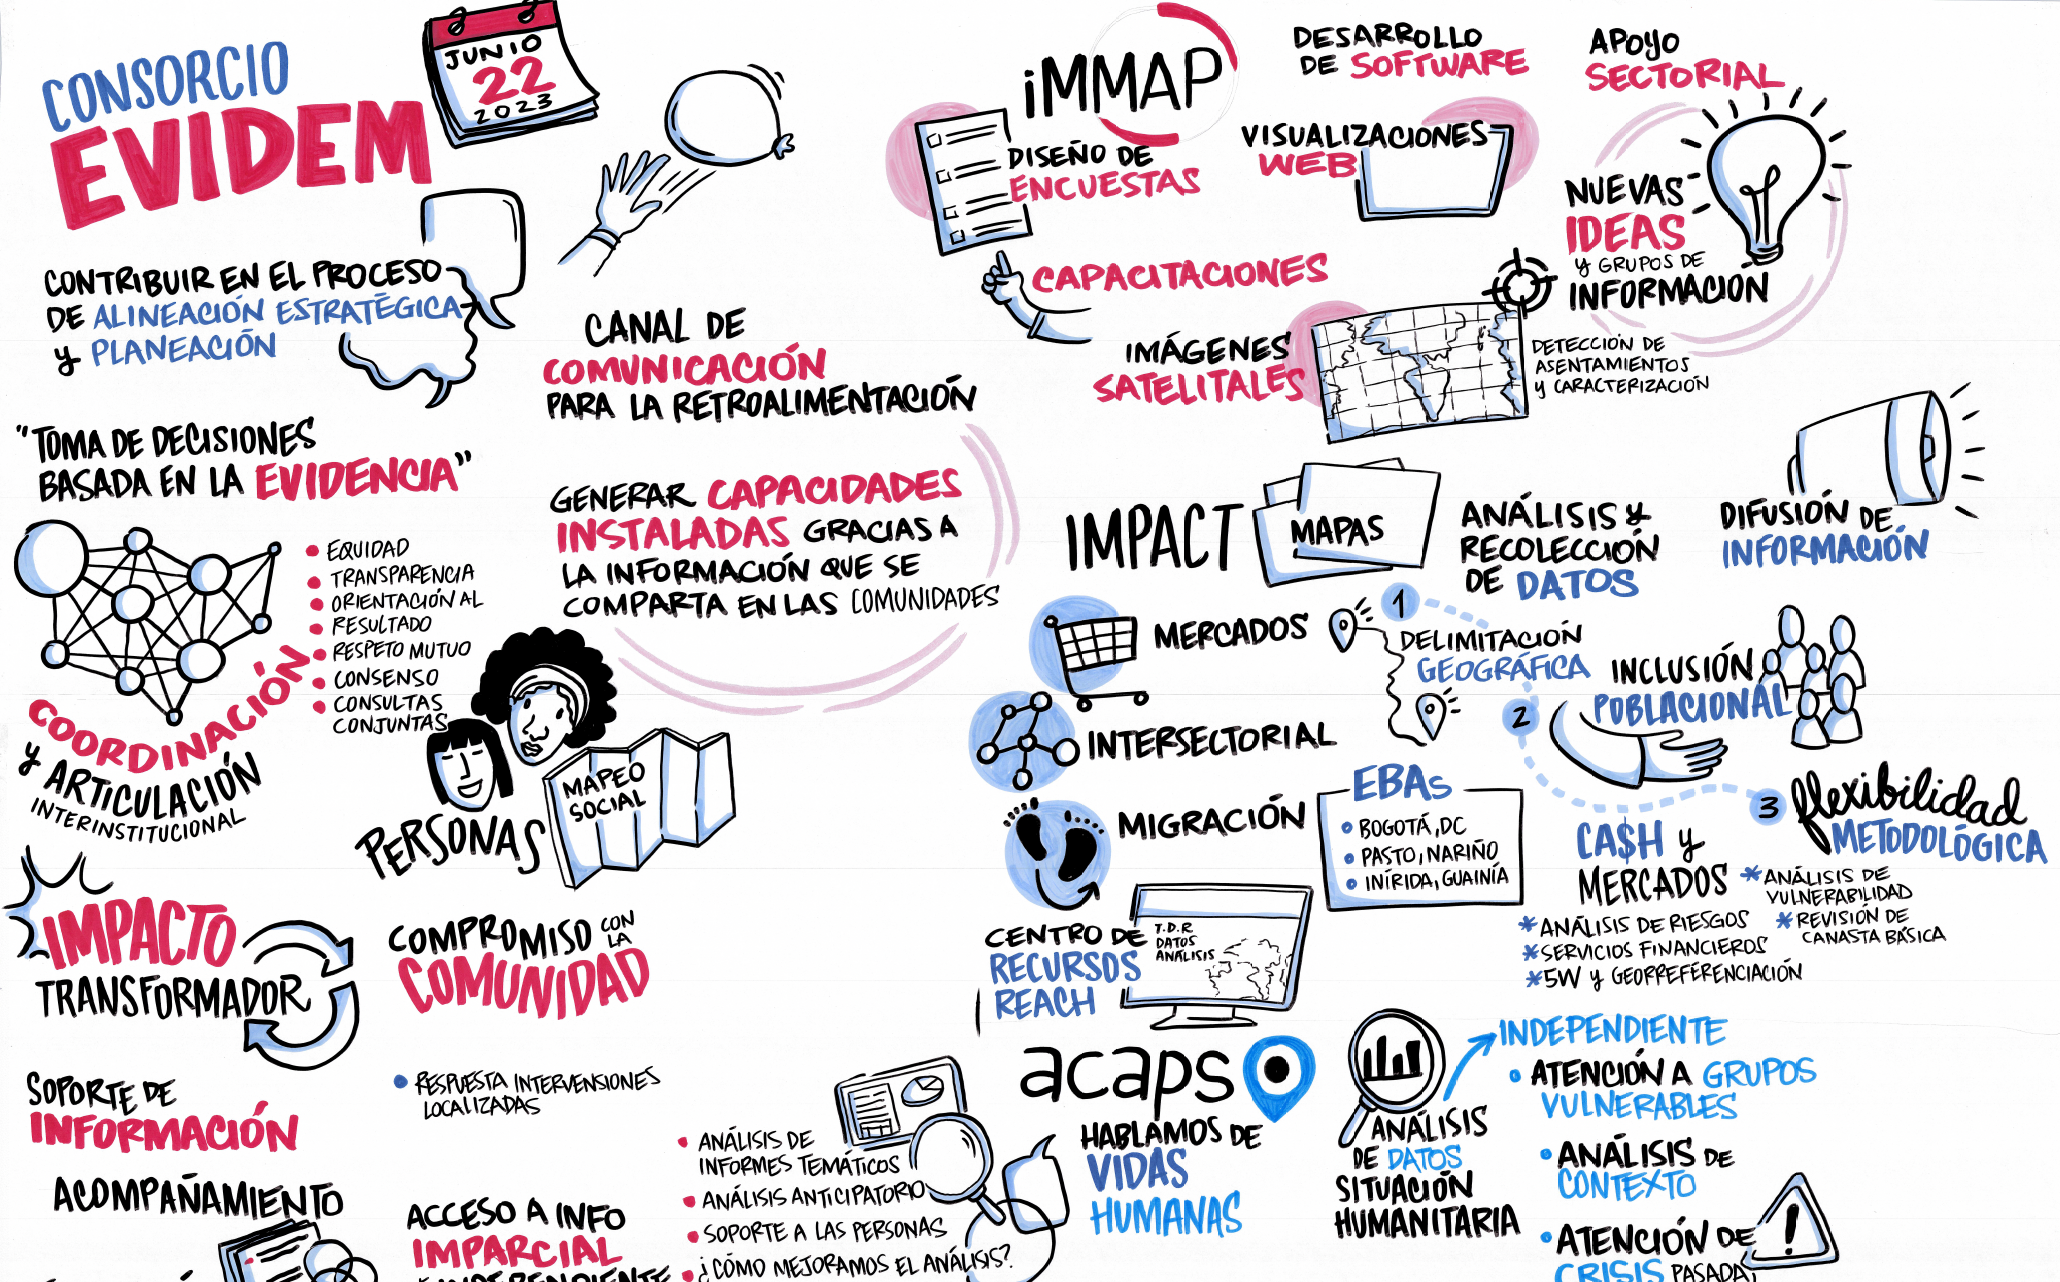 CONSORCIO
EVIDEM
JUNIO
22
2023
CONTRIBUIR EN EL PROCESO
DE ALINEACIÓN ESTRATÉGICA
y PLANEACIÓN
"TOMA DE DECISIONES
BASADA EN LA EVIDENCIA"
• EQUIDAD
• TRANSPARENCIA
• ORIENTACIÓN AL
• RESULTADO
• RESPETO MUTUO
• CONSENSO
• CONSULTAS
CONJUNTAS
COORDINACIÓN
y ARTICULACIÓN
INTERINSTITUCIONAL
CANAL DE
COMUNICACIÓN
PARA LA RETROALIMENTACIÓN
GENERAR CAPACIDADES
INSTALADAS GRACIAS A
LA INFORMACIÓN QUE SE
COMPARTA EN LAS COMUNIDADES
PERSONAS
MAPEO
SOCIAL
IMPACTO
TRANSFORMADOR
COMPROMISO CON
LA
COMUNIDAD
SOPORTE DE
INFORMACIÓN
• RESPUESTA INTERVENSIONES
LOCALIZADAS
ACOMPAÑAMIENTO
ACCESO A INFO
IMPARCIAL
• ANÁLISIS DE
INFORMES TEMÁTICOS
• ANÁLISIS ANTICIPATORIO
• SOPORTE A LAS PERSONAS
• ¿CÓMO MEJORAMOS EL ANÁLISIS?
iMMAP
DISEÑO DE
ENCUESTAS
DESARROLLO
DE SOFTWARE
APOYO
SECTORIAL
VISUALIZACIONES
WEB
NUEVAS
IDEAS
y GRUPOS DE
INFORMACIÓN
CAPACITACIONES
IMÁGENES
SATELITALES
DETECCIÓN DE
ASENTAMIENTOS
y CARACTERIZACIÓN
IMPACT
MAPAS
ANÁLISIS y
RECOLECCIÓN
DE DATOS
DIFUSIÓN DE
INFORMACIÓN
MERCADOS
INTERSECTORIAL
MIGRACIÓN
1
DELIMITACIÓN
GEOGRÁFICA
2
INCLUSIÓN
POBLACIONAL
3
flexibilidad
METODOLÓGICA
EBAs
• BOGOTÁ, DC
• PASTO, NARIÑO
• INÍRIDA, GUAINÍA
CA$H y
MERCADOS
* ANÁLISIS DE
VULNERABILIDAD
* ANÁLISIS DE RIESGOS
* REVISIÓN DE
CANASTA BÁSICA
* SERVICIOS FINANCIEROS
* 5W y GEORREFERENCIACIÓN
CENTRO DE
RECURSOS
REACH
T.D.R
DATOS
ANÁLISIS
acaps
HABLAMOS DE
VIDAS
HUMANAS
ANÁLISIS
DE DATOS
SITUACIÓN
HUMANITARIA
INDEPENDIENTE
• ATENCIÓN A GRUPOS
VULNERABLES
• ANÁLISIS DE
CONTEXTO
• ATENCIÓN DE
CRISIS PASADA,
!